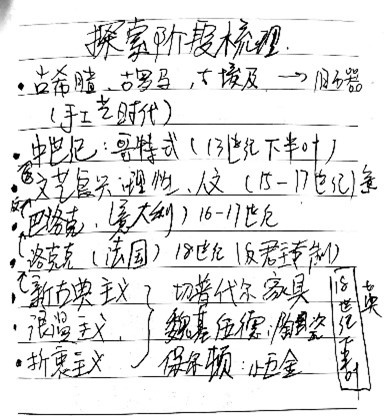 探索阶段梳理.
• 古希腊、古罗马、古埃及 → 旧石器
(手工艺时代)
• 中世纪：哥特式 (13世纪下半叶)
• 文艺复兴:理性、人文 (15-17世纪)
• 巴洛克 (意大利) 16-17世纪
洛可可 (法国) 18世纪 (反君主专制)
• 新古典主义 } 切普代尔 家具
• 浪漫主义 魏基伍德:陶瓷
• 折衷主义 保尔顿:小五金
18世纪下半叶
英